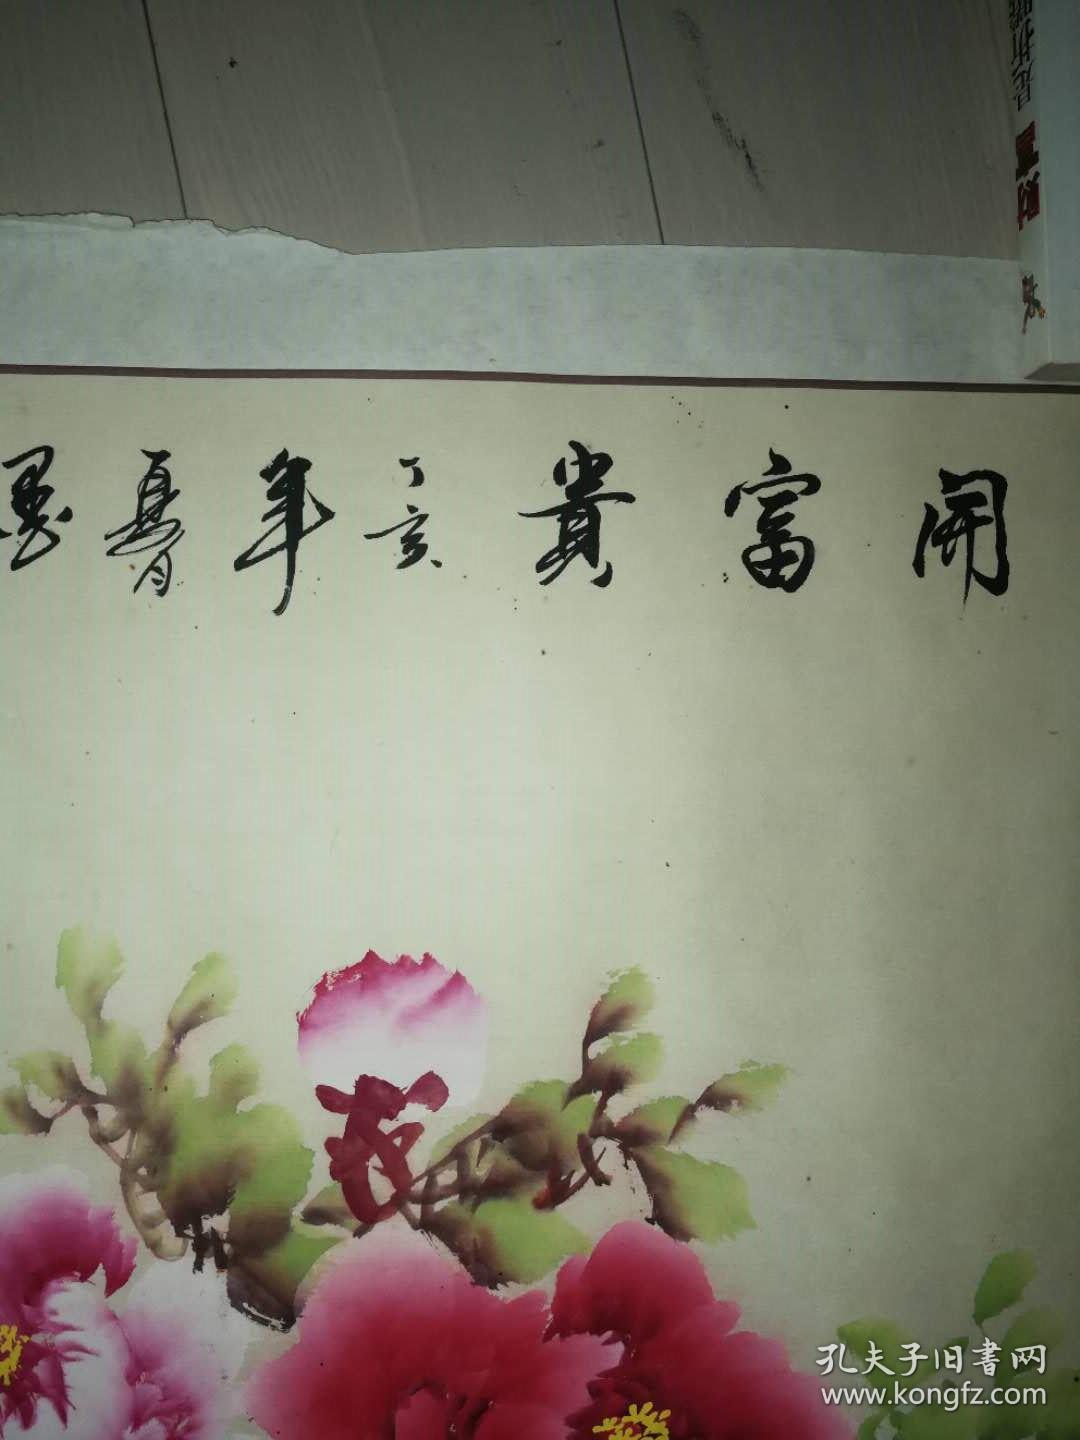 開富貴丁亥年夏月墨
孔夫子旧書网
www.kongfz.com